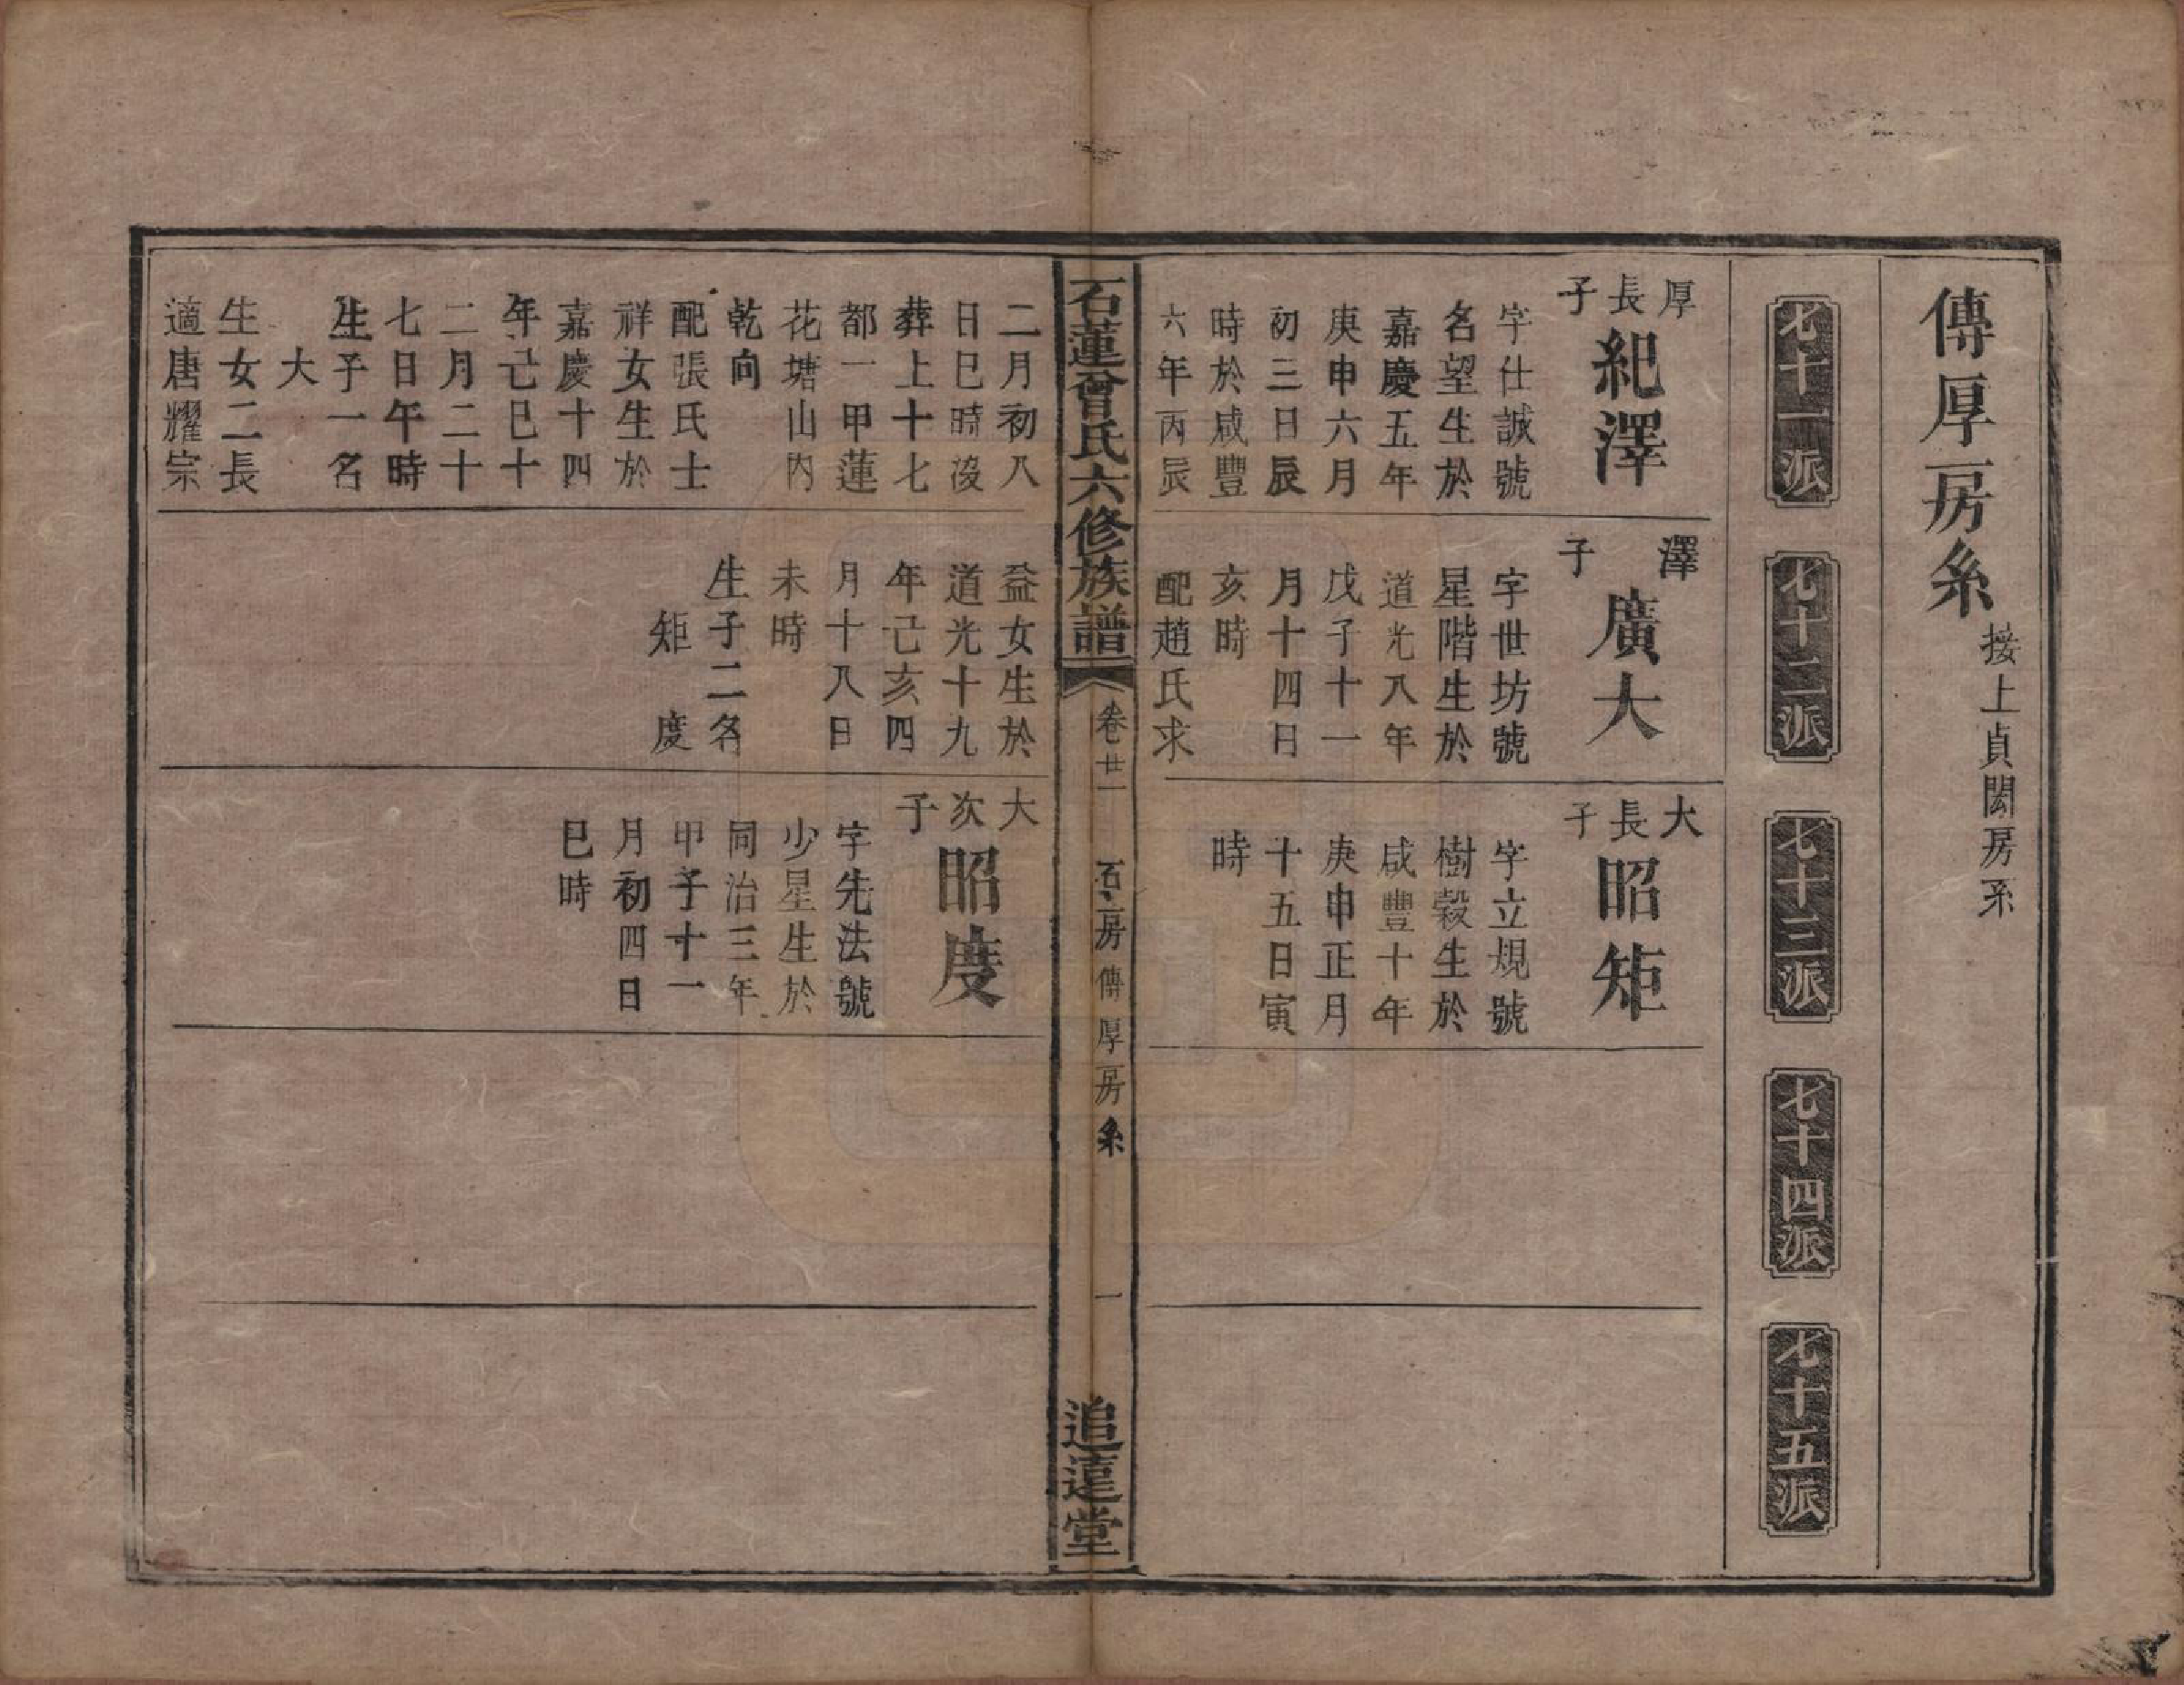 傳厚房糸
接上貞閎房系
七十一派
七十二派
七十三派
七十四派
七十五派
厚長子
紀澤
字仕誠號
名望生於
嘉慶五年
庚申六月
初三日辰
時於咸豐
六年丙辰
二月初八
日巳時沒
葬上十七
都一甲蓮
花塘山內
乾向
配張氏士
祥女生於
嘉慶十四
年己巳十
二月二十
七日午時
生子一名
大
生女二長
適唐耀宗
澤子
廣大
字世坊號
星階生於
道光八年
戊子十一
月十四日
亥時
配趙氏求
益女生於
道光十九
年己亥四
月十八日
未時
生子二名
矩 度
大長子
昭矩
字立規號
樹穀生於
咸豐十年
庚申正月
十五日寅
時
大次子
昭度
字先法號
少星生於
同治三年
甲子十一
月初四日
巳時
石蓮曾氏六修族譜
卷廿一
石玉房傳厚房糸
一
追遠堂